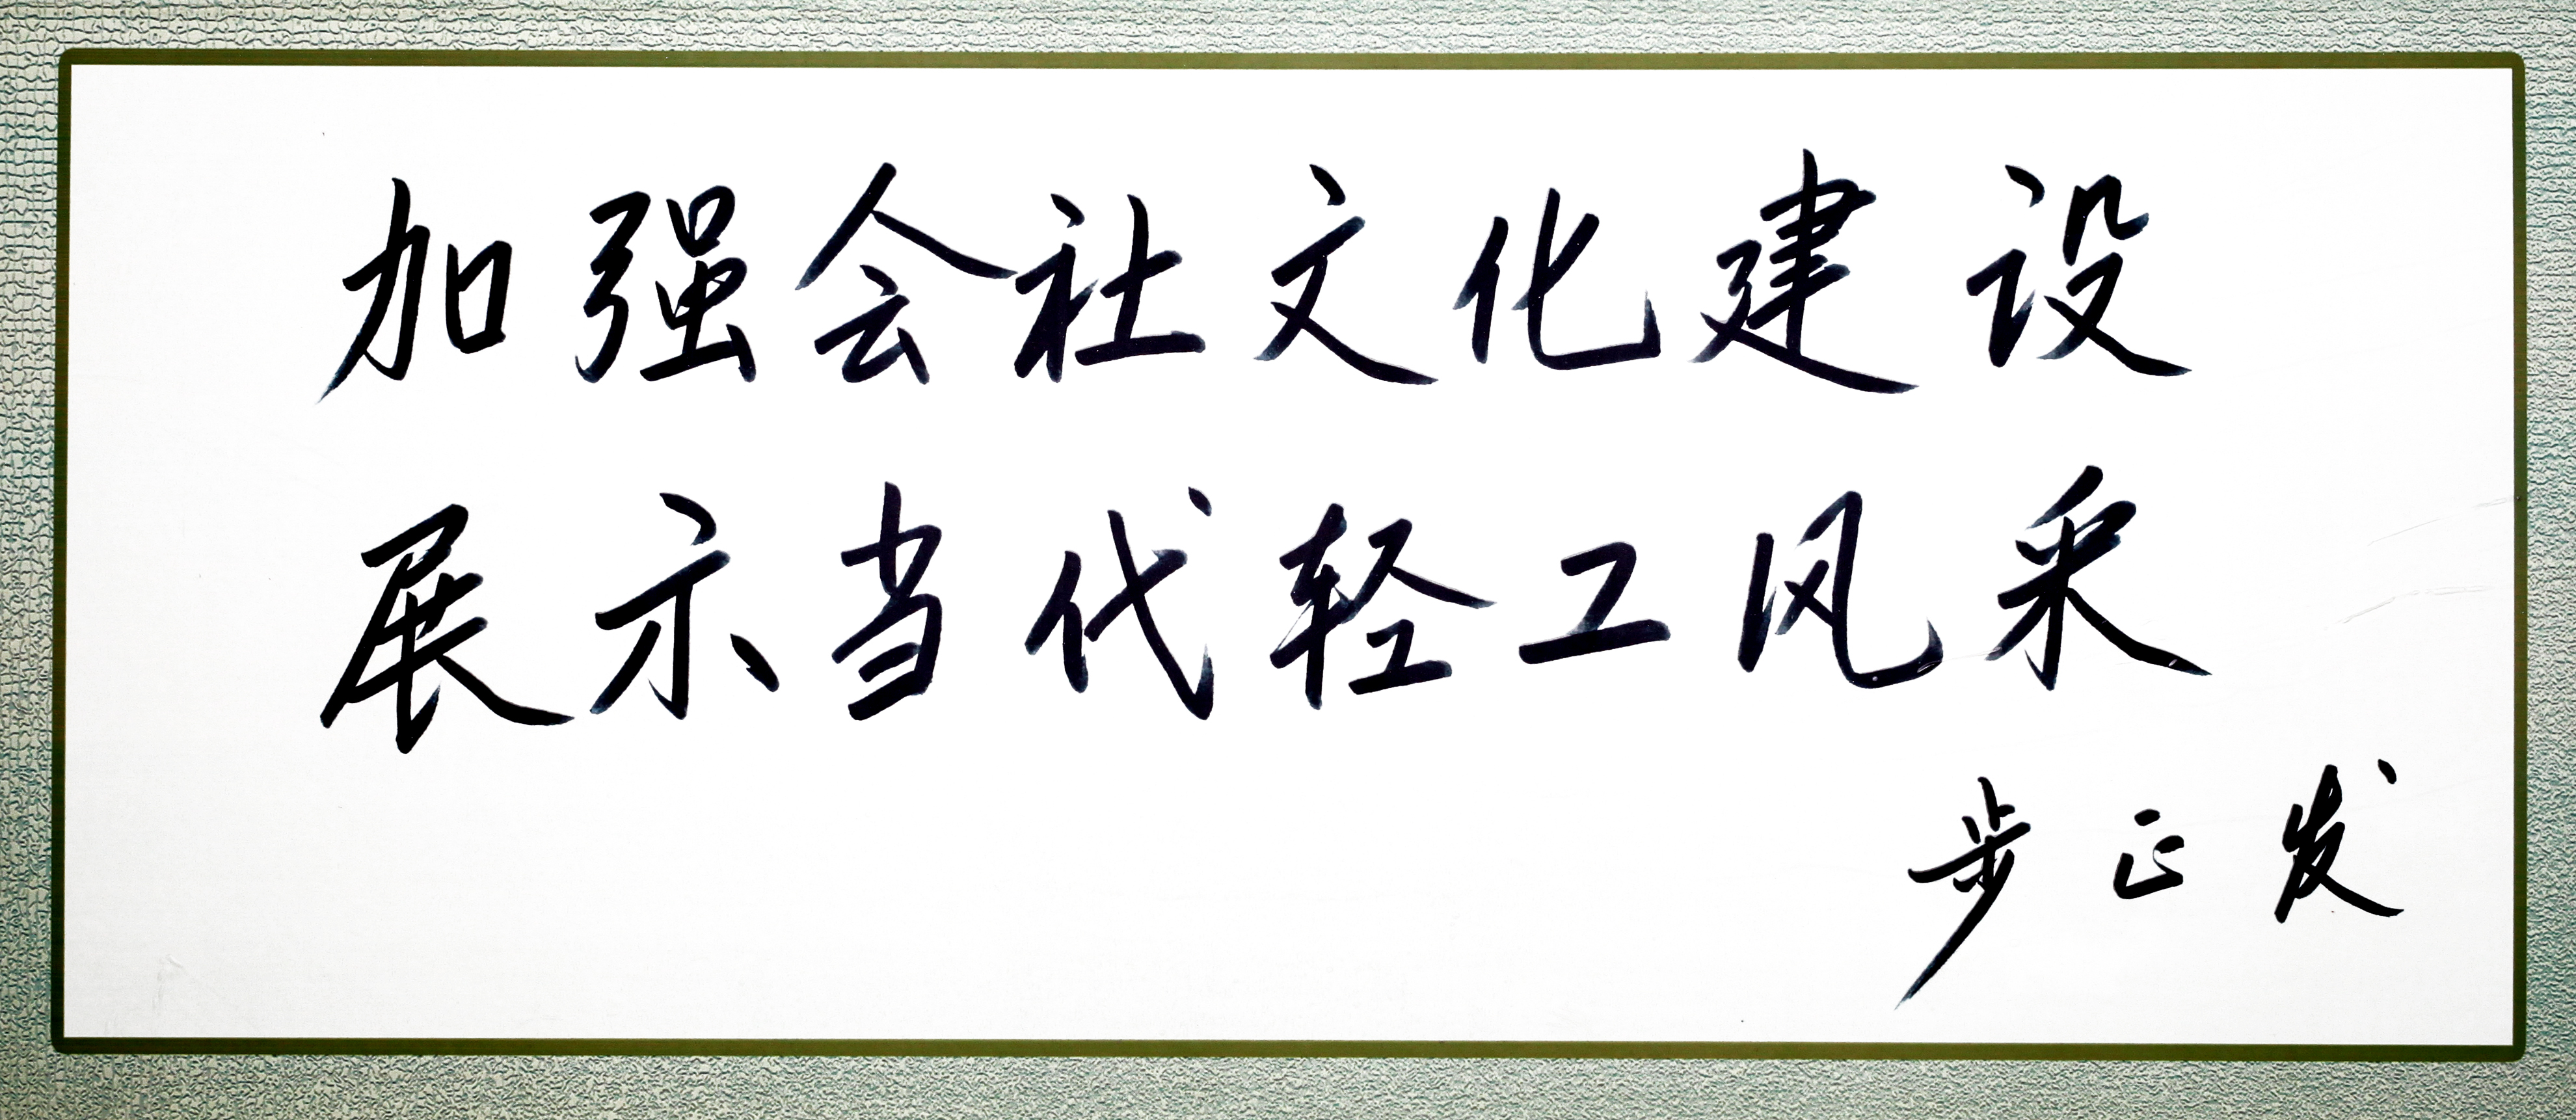 加强会社文化建设
展示当代轻工风采
步正发